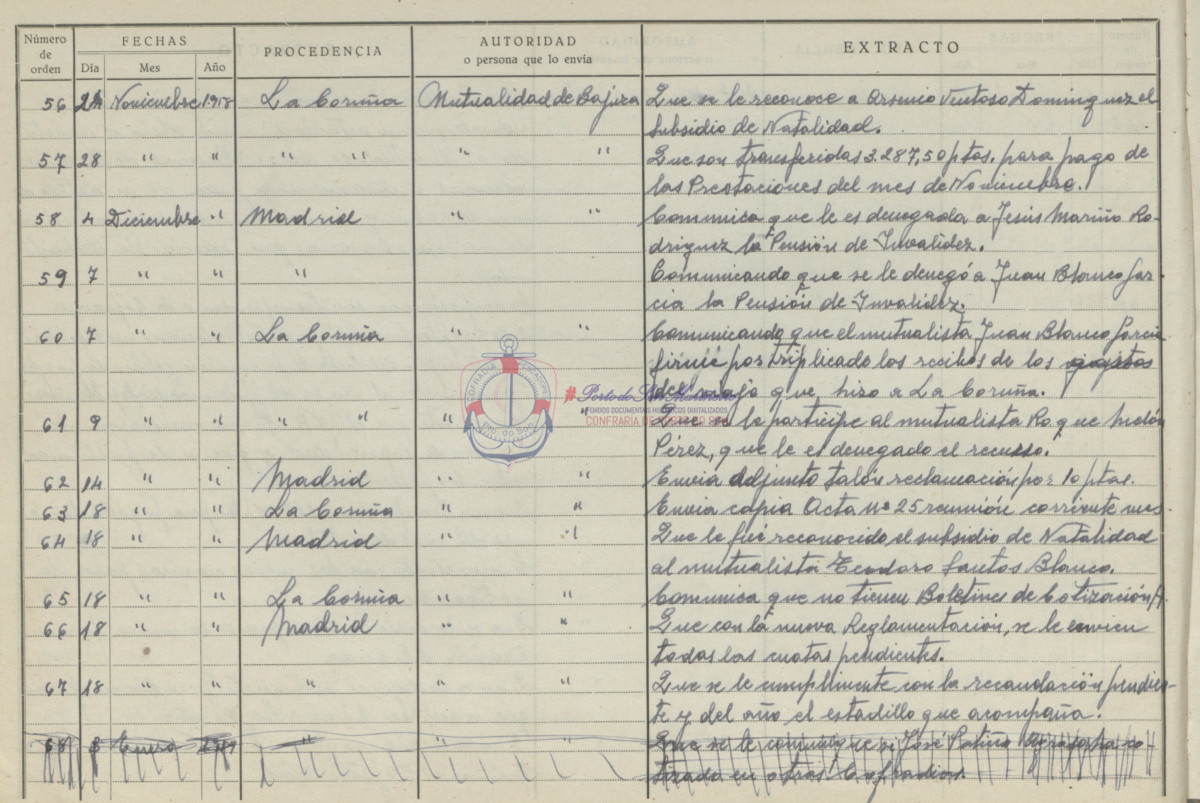 Número de orden FECHAS PROCEDENCIA AUTORIDAD o persona que lo envia EXTRACTO
Día Mes Año
56 24 Noviembre 1958 La Coruña Mutualidad de Bajura Que se le reconoce a Arsenio Ventoso Dominguez el
Subsidio de Natalidad.
57 28 " " " " " " Que son transferidas 3.287,50 ptas. para pago de
las Prestaciones del mes de Noviembre.
58 4 Diciembre " Madrid " " Comunica que le es denegada a Jesús Mariño Ro-
driguez la Pensión de Invalidez.
59 7 " " " Comunicando que se le denegó a Juan Blanco Gar-
cia la Pensión de Invalidez.
60 7 " " La Coruña " " Comunicando que el mutualista Juan Blanco Garcia
firme por triplicado los recibos de los gastos
del viaje que hizo a La Coruña.
61 9 " " " " " Que se le participe al mutualista Ro que
Pérez, que le es denegado el recurso.
62 14 " " Madrid " " Envia adjunto talón reclamación por 10 ptas.
63 18 " " La Coruña " " Envia copia Acta nº 25 reunión corriente mes.
64 18 " " Madrid " " Que le fué reconocido el subsidio de Natalidad
al mutualista Teodoro Santos Blanco.
65 18 " " La Coruña " " Comunica que no tienen Boletines de Cotización
66 18 " " Madrid " " Que con la nueva Reglamentación, se le envien
todas las cuotas pendientes.
67 18 " " " " " Que se le cumplimente con la recaudación pendien-
te y del año el estadillo que acompaña.
68 3 Enero " " " Que se le comunique si José Patiño
tizado en otras Cofradias.
COFRADIA PESCADORES
PTO. do Son
#PortodoSon
FONDOS DOCUMENTAIS HISTÓRICOS DIXITALIZADOS
CONFRARÍA DE PORTO DO SON